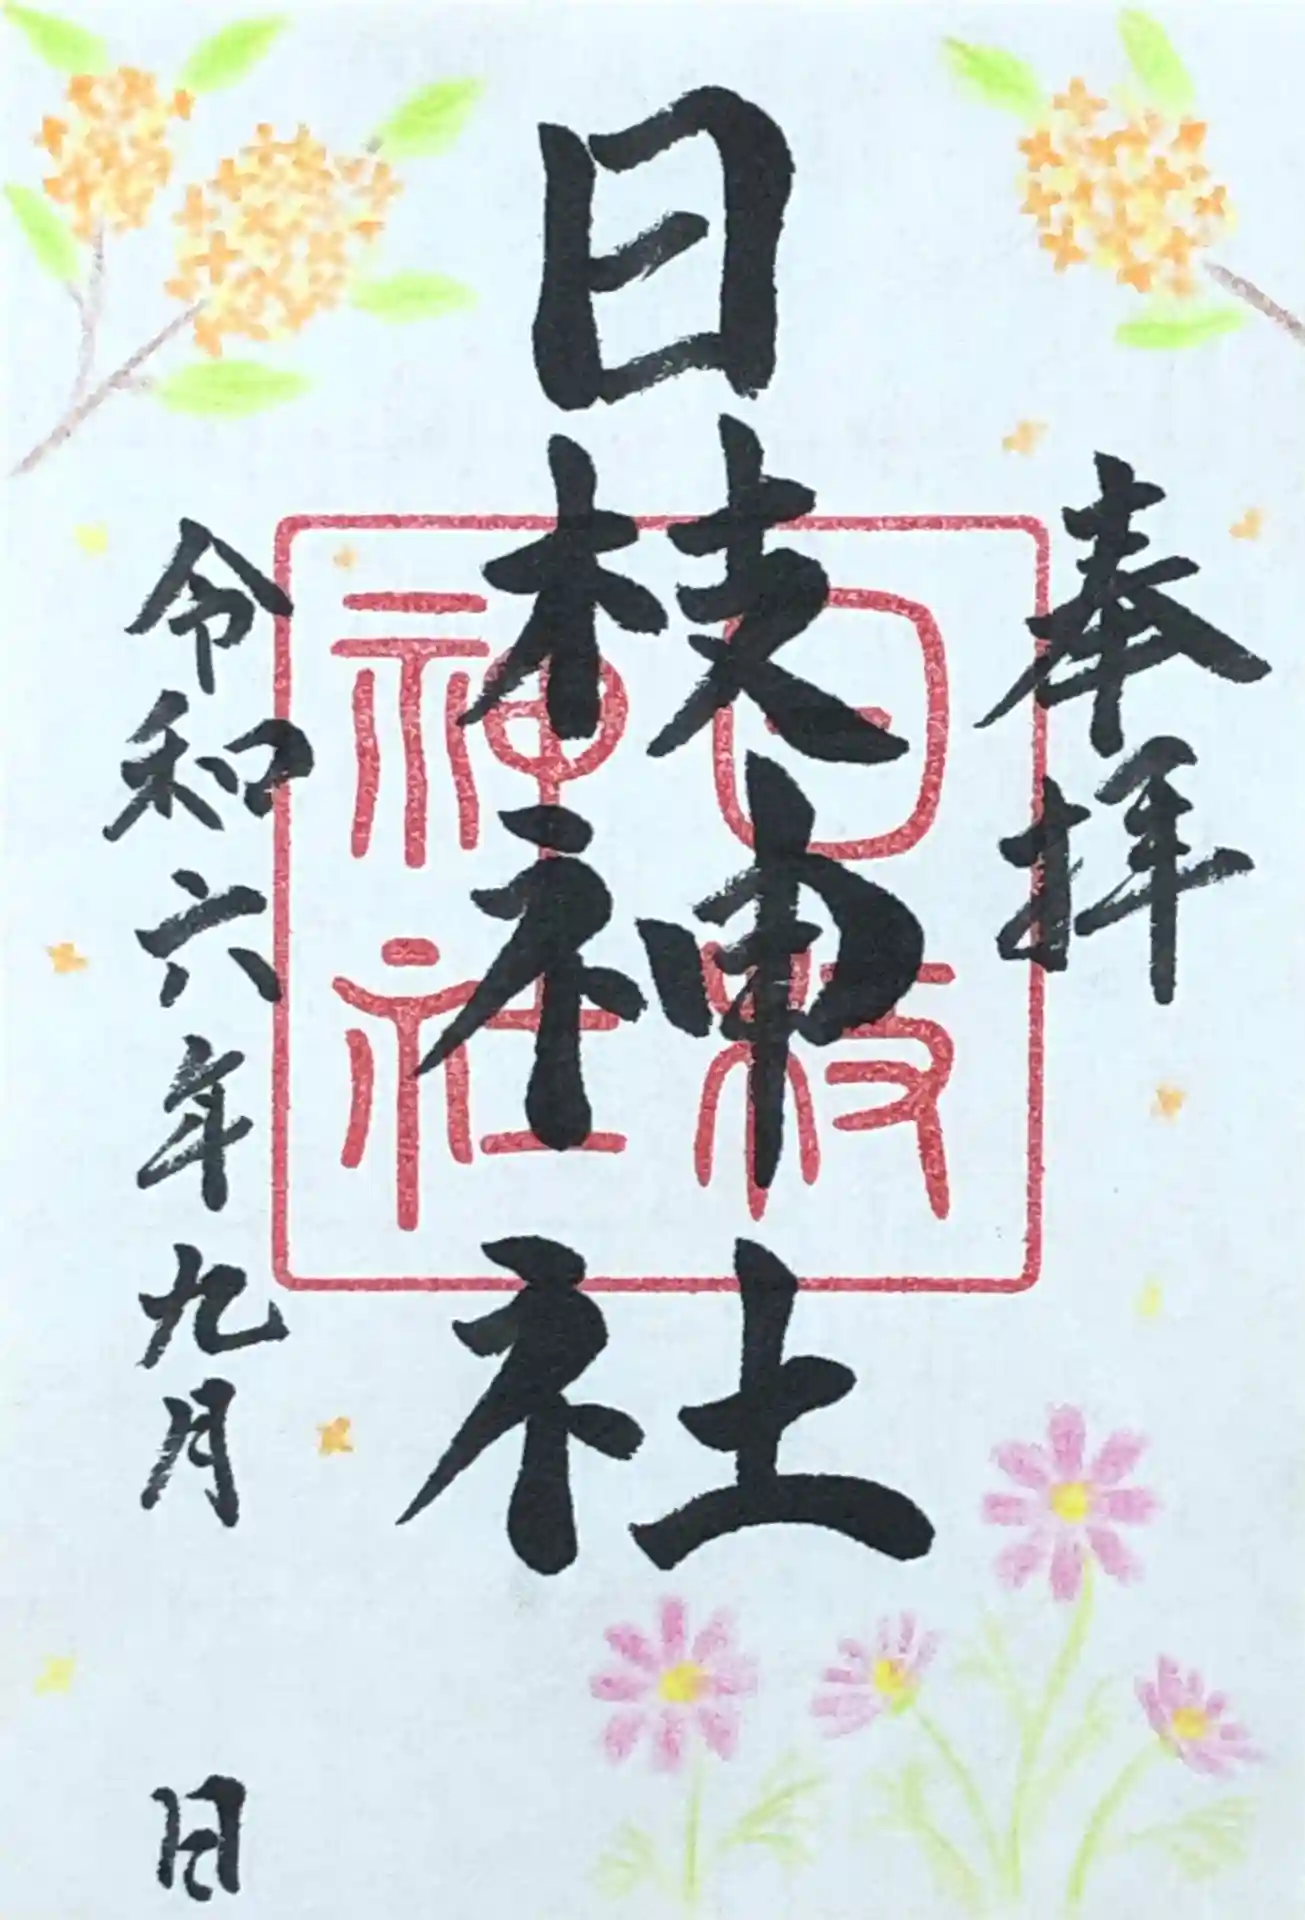 奉拝
日枝神社
日枝
神社
令和六年九月 日